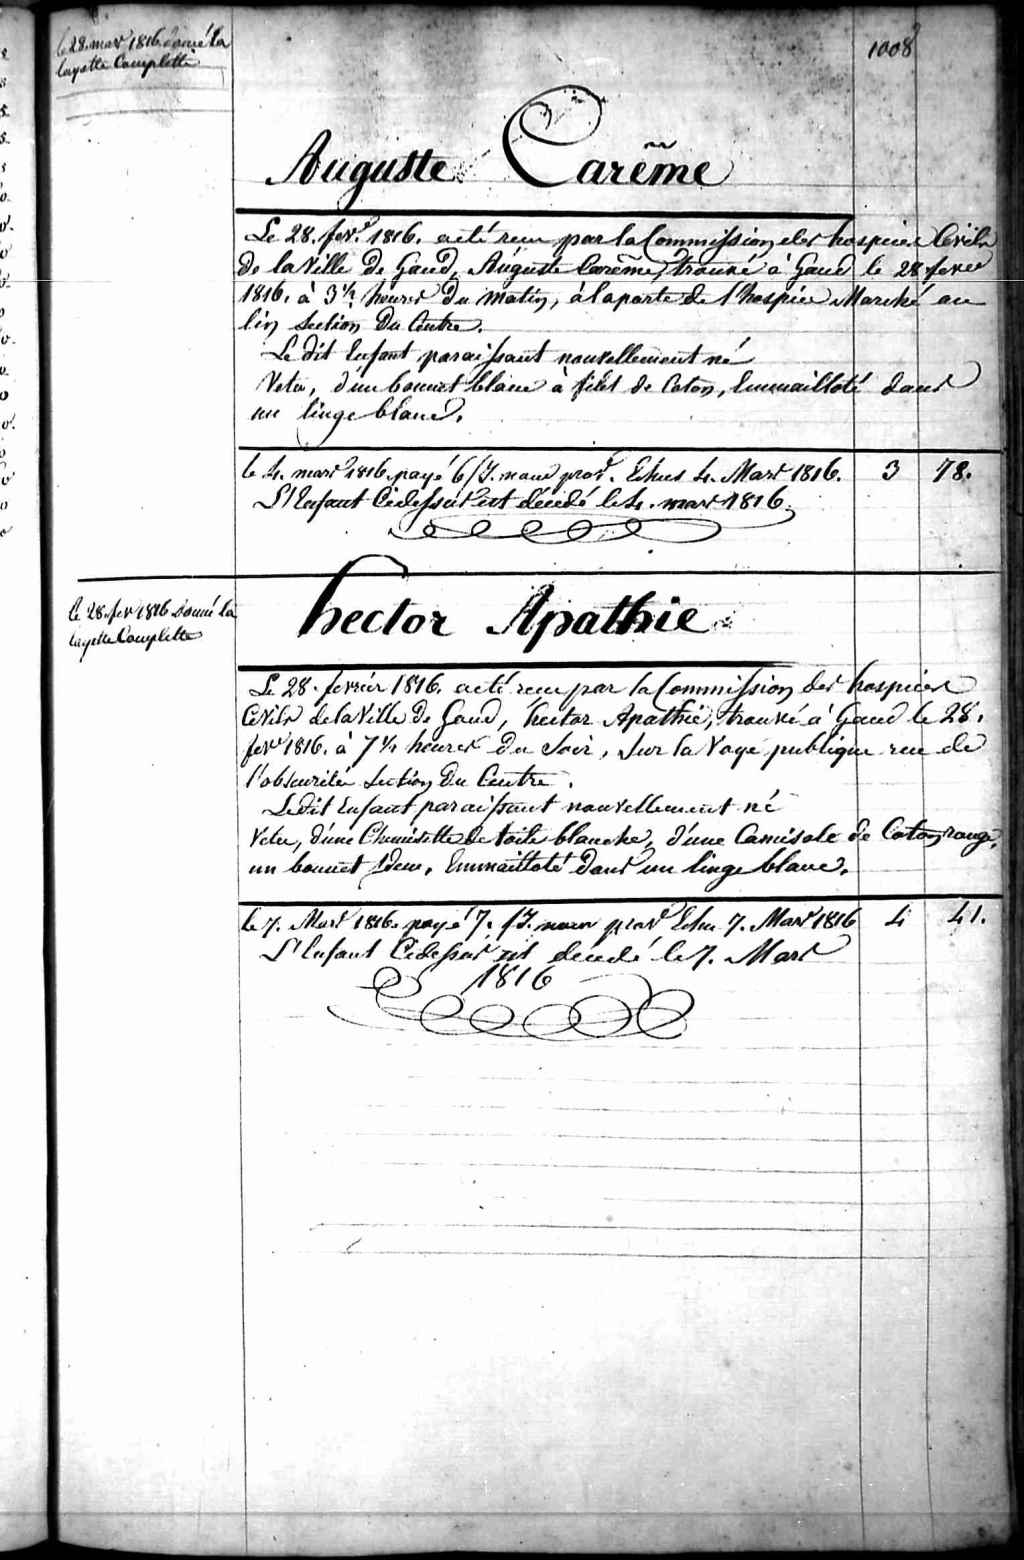 1008
le 28. mars 1816 donné la
layette Complette
Auguste Carême
Le 28. fevr. 1816. a eté recu par la Commission des hospices Civils
de la Ville de Gand, Auguste Carême, trouvé à Gand le 28 fevrer
1816. à 3 1/2 heures du matin, à la porte de l'hospice Marché au
lin Section du Centre.
Le dit Enfant paraissant nouvellement né
Vetu, d'un bonnet blanc à filet de Coton, Emmailloté dans
un linge blanc.
le 4. mars 1816 payé 6/J. nour prov. Echus 4. Mars 1816. 3 78.
L'Enfant Cidessus est décédé le 4. mars 1816.
le 28. fev 1816 donné la
layette Complette
hector Apathie
Le 28. fevrier 1816. a eté recu par la Commission des hospices
Civils de la Ville de Gand, hector Apathie, trouvé à Gand le 28.
fevr 1816. à 7 1/4 heures du Soir, Sur la Voye publique rue de
l'obscurité Section du Centre.
Ledit Enfant paraissant nouvellement né
Vetu, d'une Chemisette de toile blanche, d'une Camisole de Coton rouge,
un bonnet Idem, Emmailloté dans un linge blanc.
le 7. Mars 1816. payé 7. /J. nour prov Echu 7. Mars 1816 4 41.
L'Enfant Cidessus est décédé le 7. Mars
1816